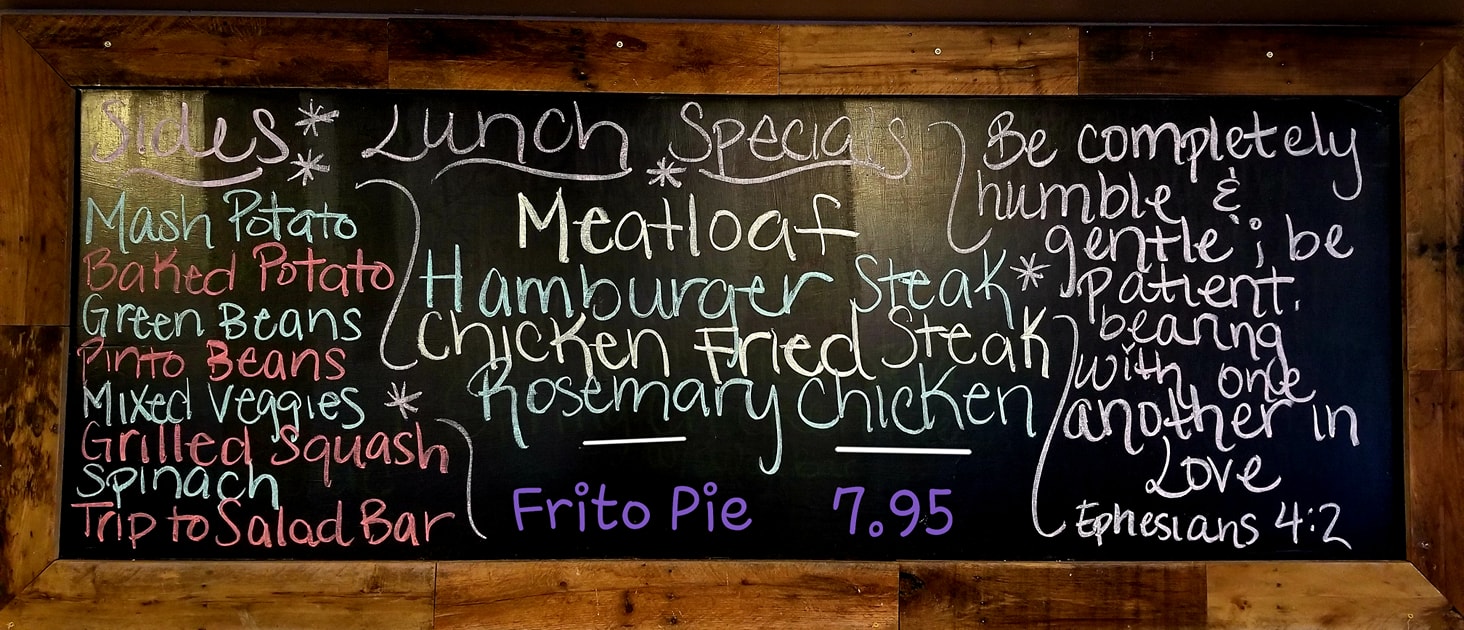 Sides
Mash Potato
Baked Potato
Green Beans
Pinto Beans
Mixed Veggies
Grilled Squash
Spinach
Trip to Salad Bar
Lunch Specials
Meatloaf
Hamburger Steak
Chicken Fried Steak
Rosemary Chicken
Frito Pie 7.95
Be completely
humble &
gentle; be
patient,
bearing
with one
another in
Love
Ephesians 4:2